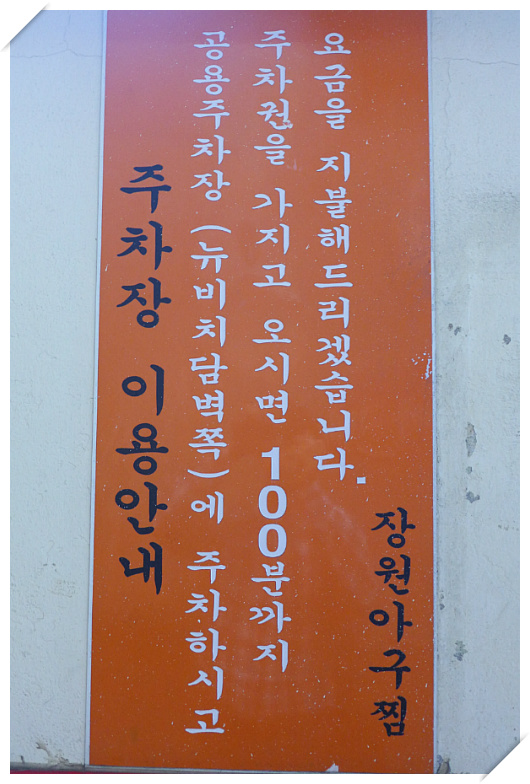 주차장 이용안내
공용주차장 (뉴비치담벽쪽)에 주차하시고
주차권을 가지고 오시면 100분까지
요금을 지불해드리겠습니다.
장원아구찜